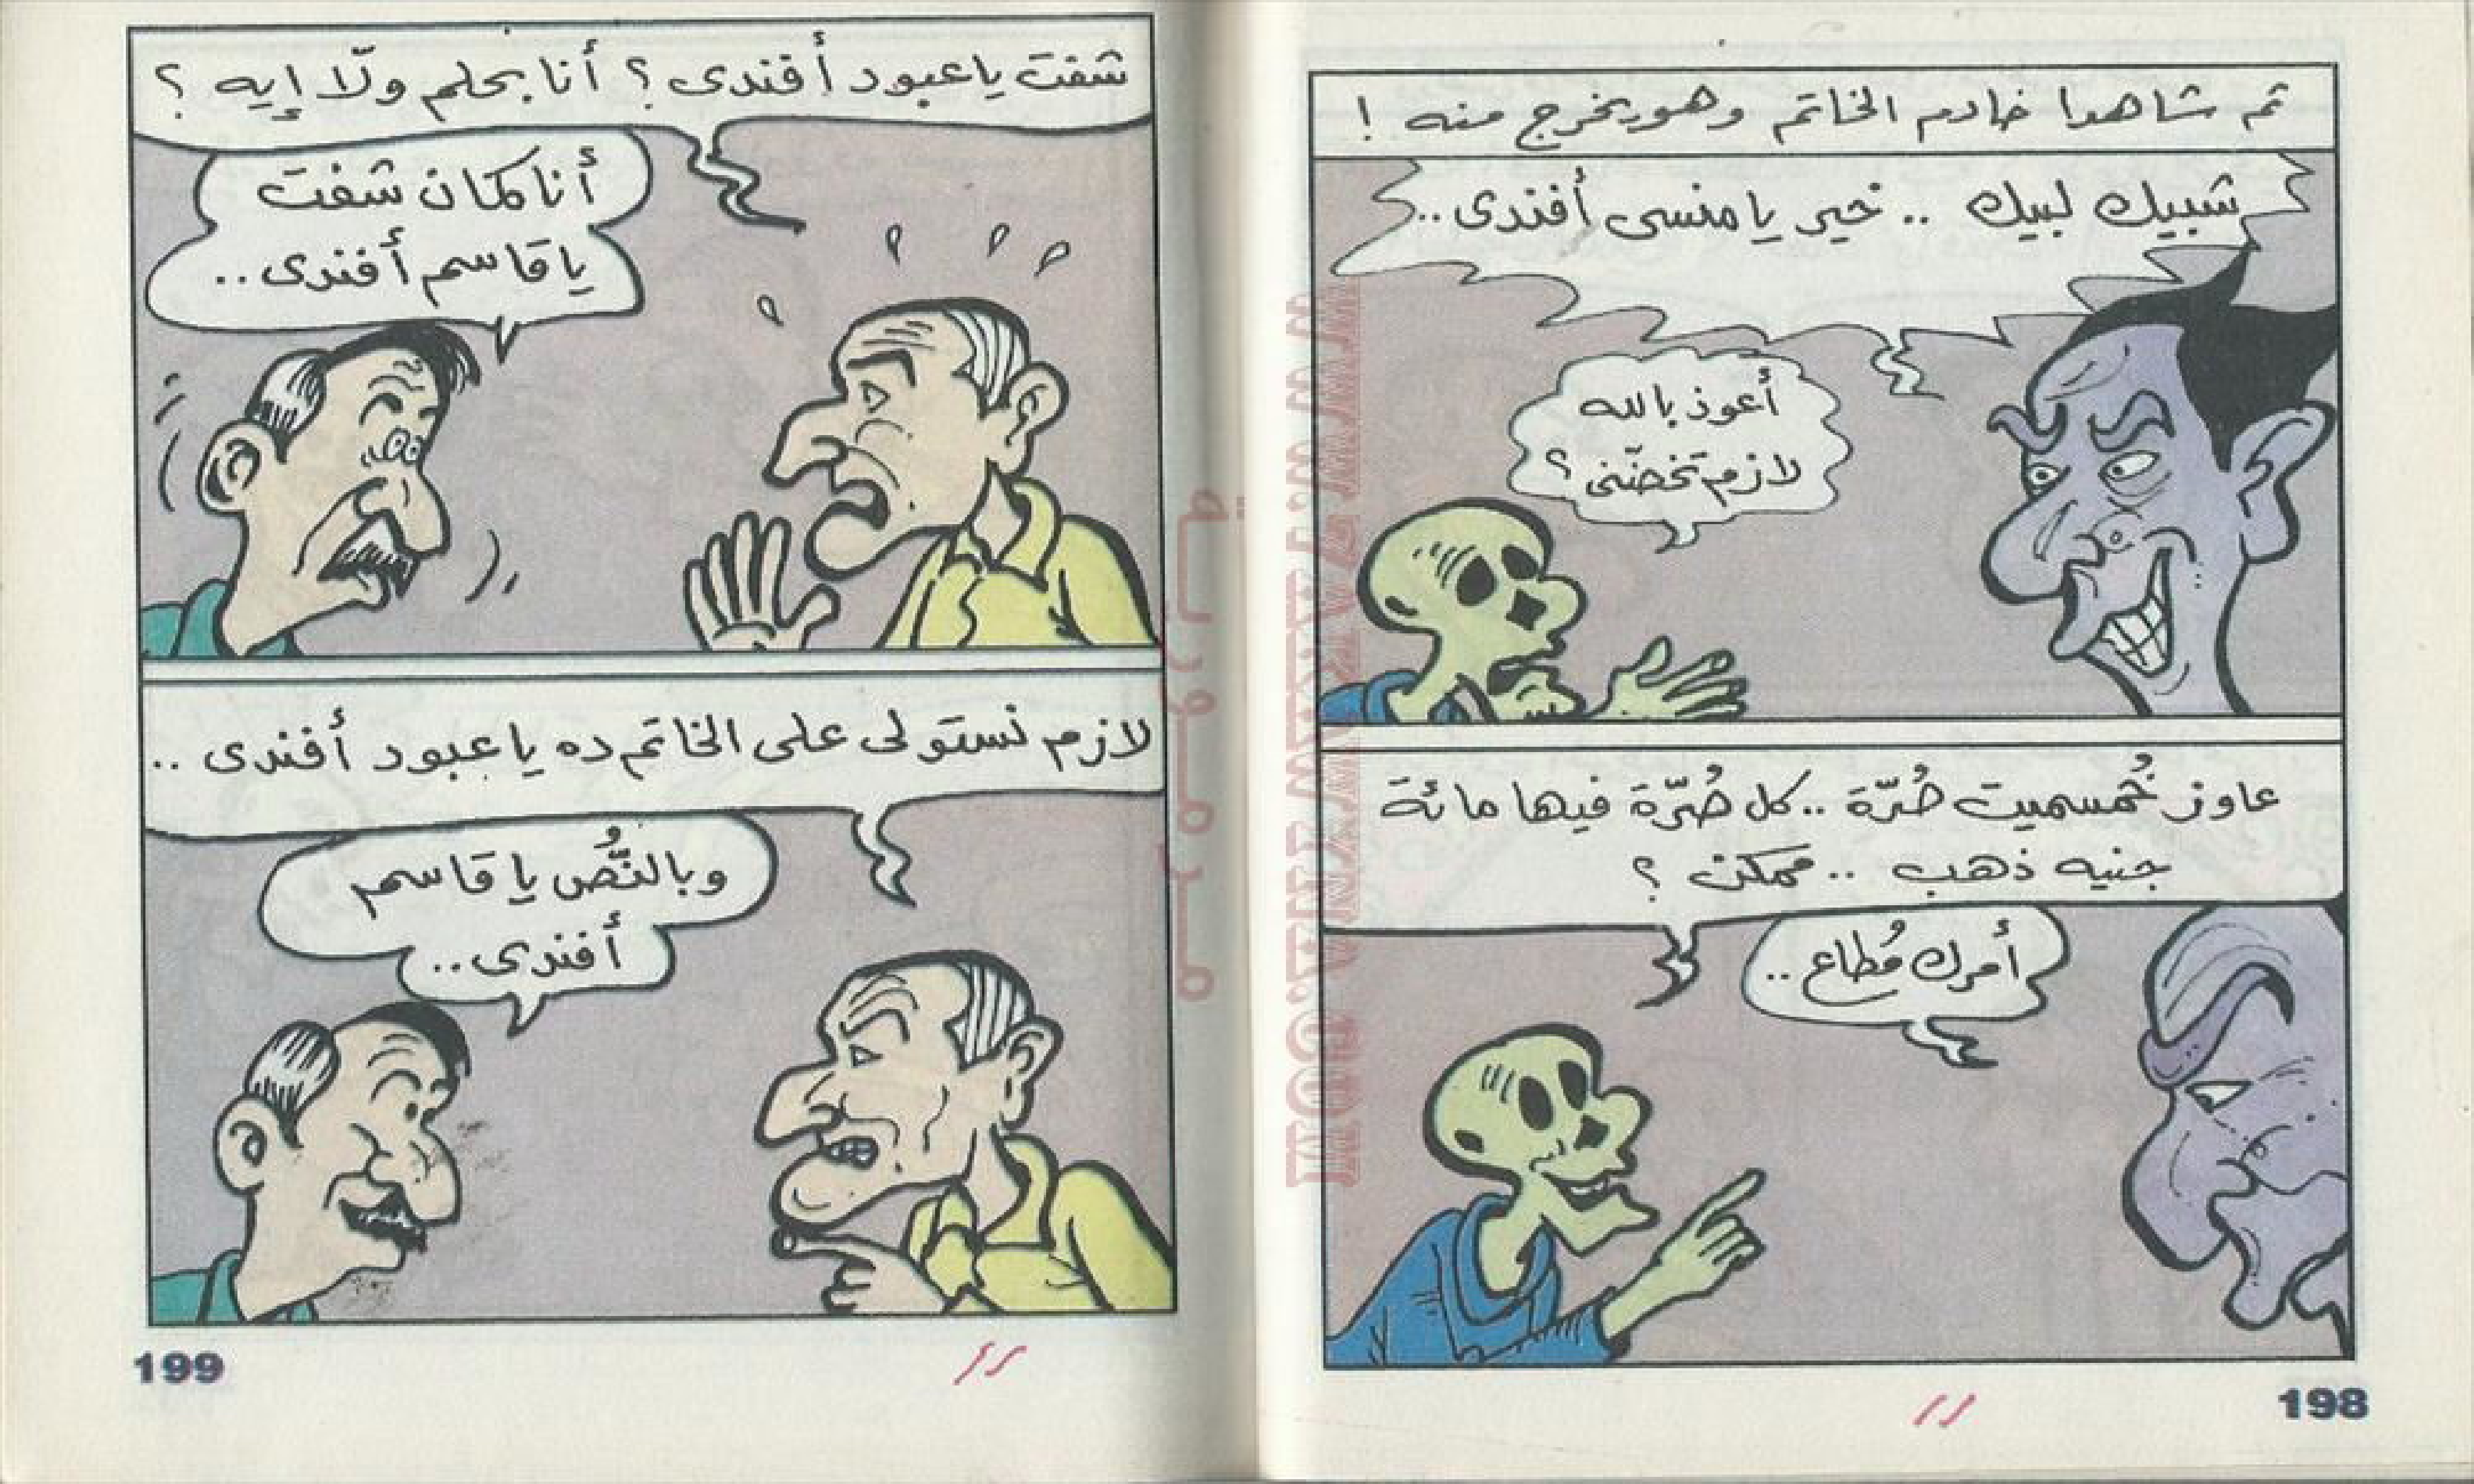 ثم شاهدا خادم الخاتم وهو يخرج منه !
شبيك لبيك .. خير يا منسى أفندى ..
أعوذ بالله
لازم تخضّنى ؟
عاوز خُمسميت صُرّة .. كل صُرّة فيها مائة
جنيه ذهب .. ممكن ؟
أمرك مُطاع ..
198
شفت يا عبود أفندى ؟ أنا بحلم ولّا إيه ؟
أنا كمان شفت
يا قاسم أفندى ..
لازم نستولى على الخاتم ده يا عبود أفندى ..
وبالنُّص يا قاسم
أفندى ..
199